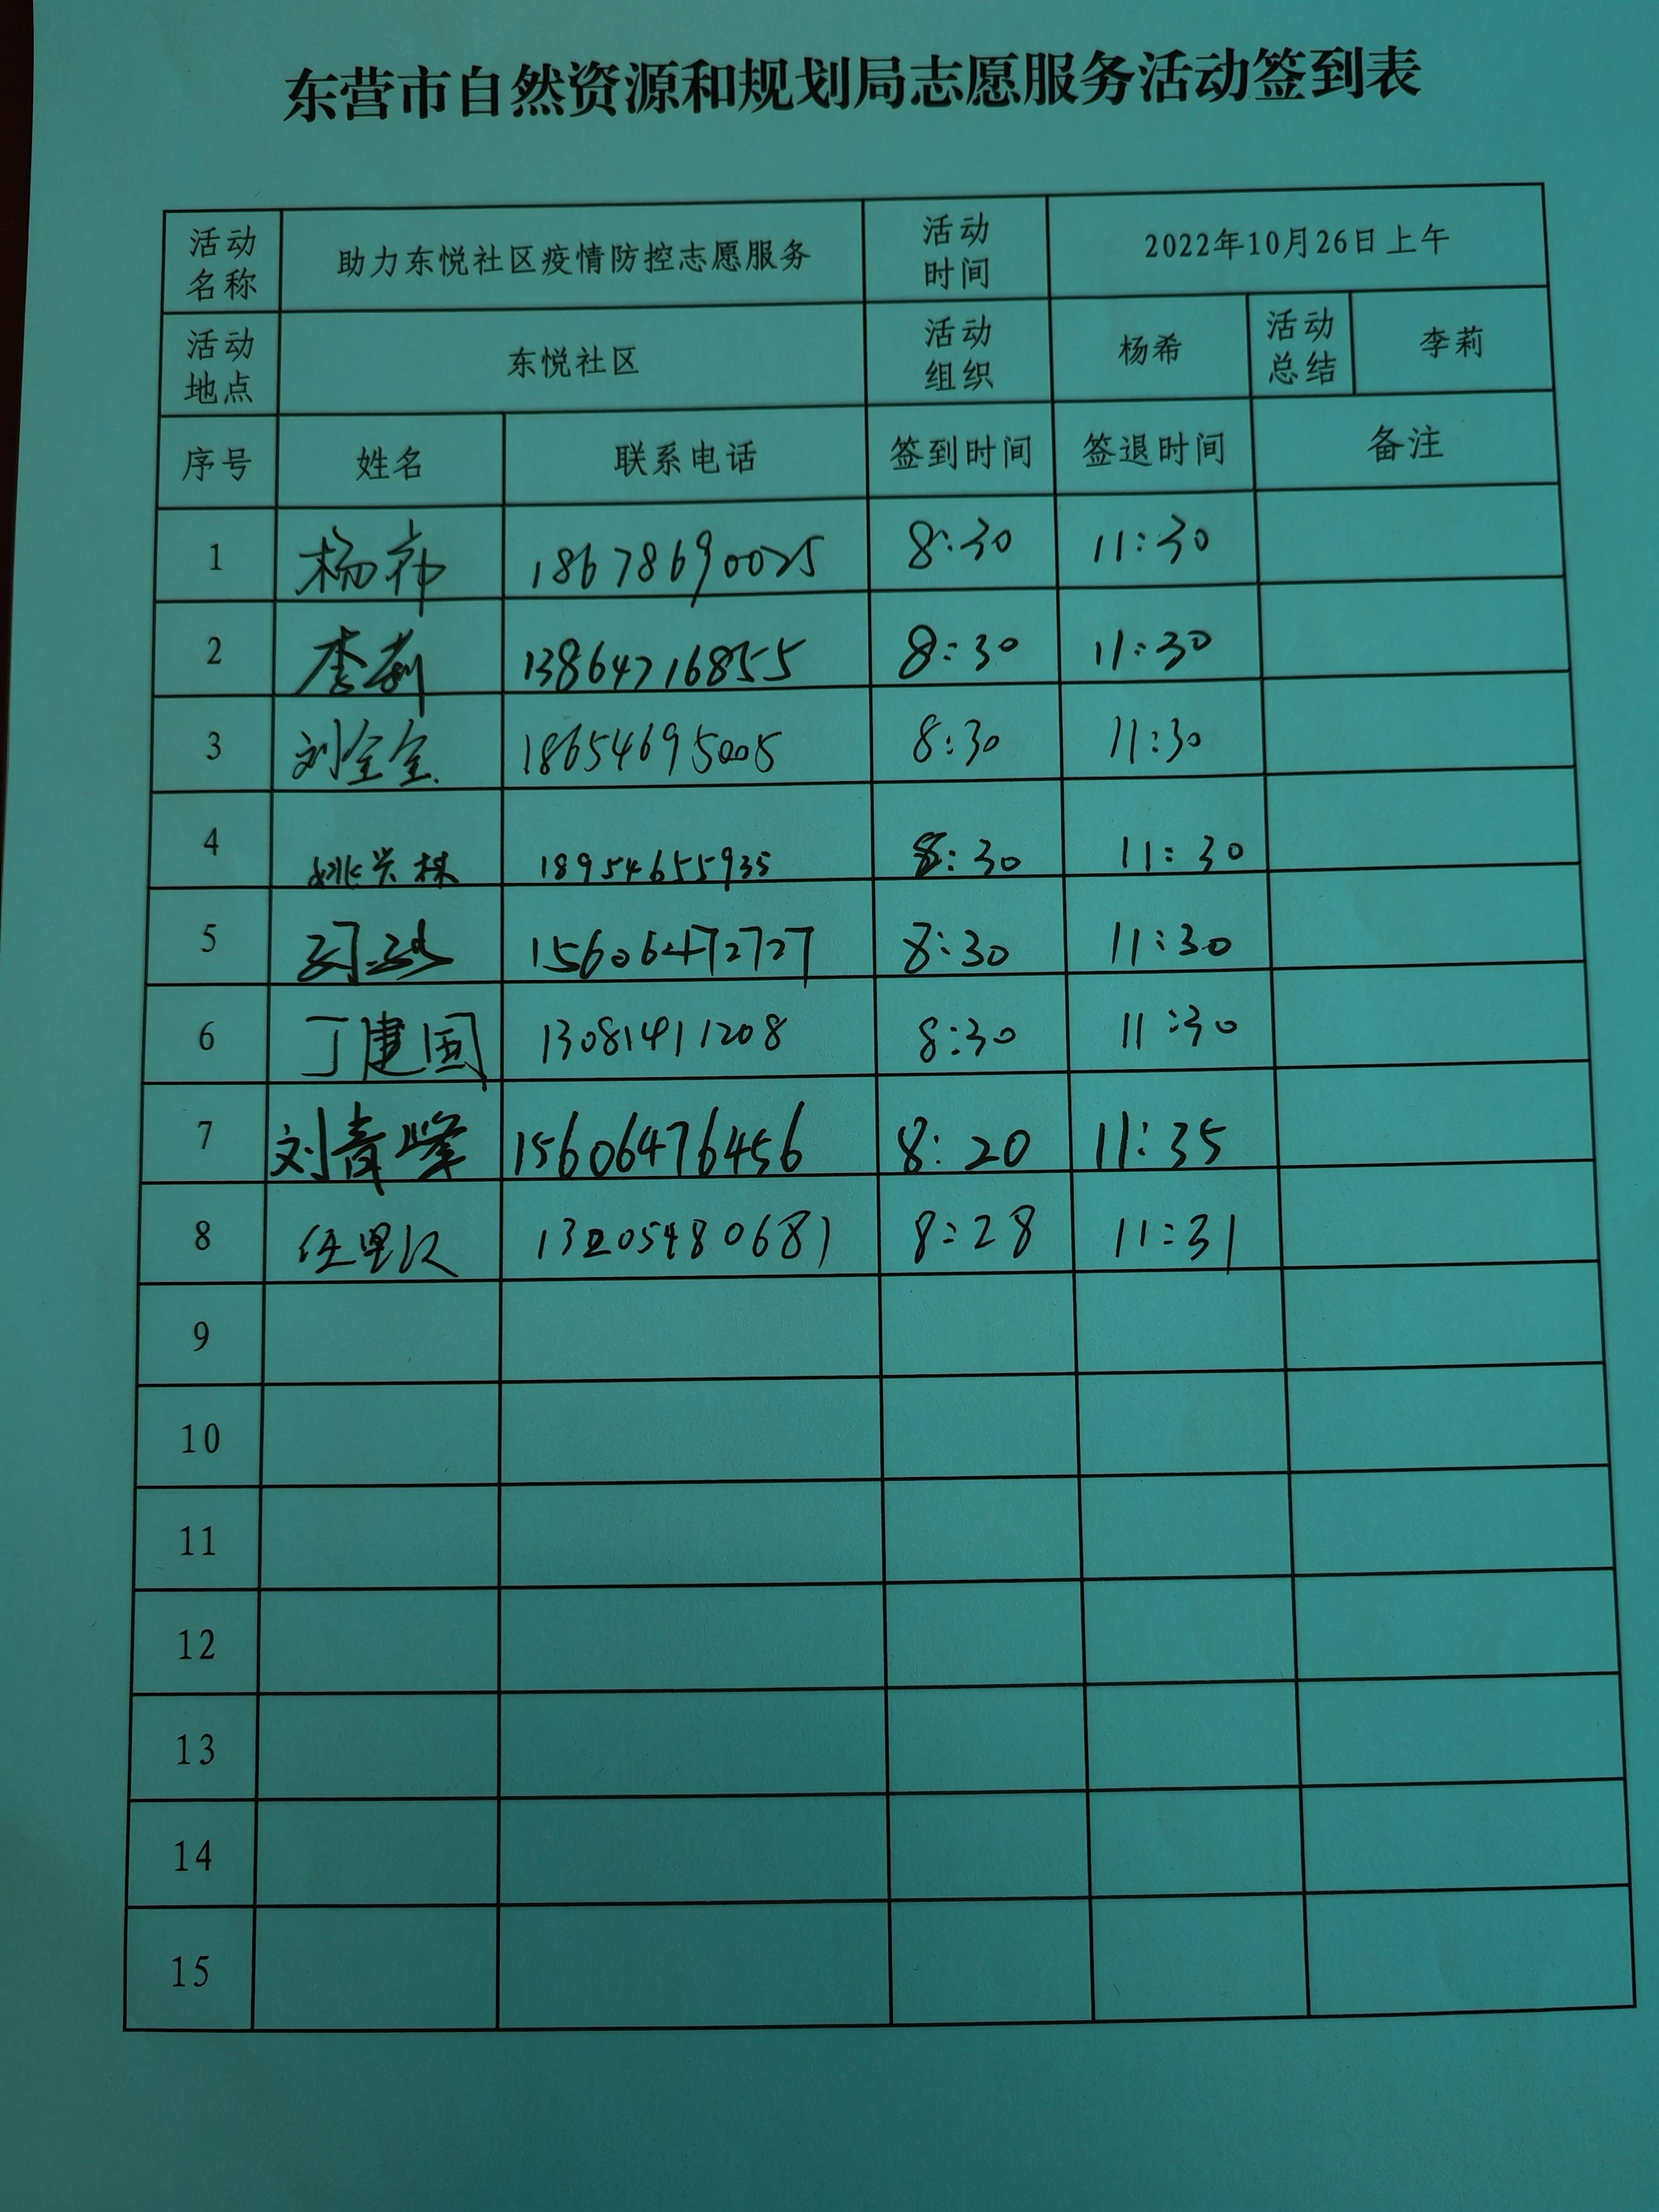 东营市自然资源和规划局志愿服务活动签到表
活动名称 助力东悦社区疫情防控志愿服务 活动时间 2022年10月26日上午
活动地点 东悦社区 活动组织 杨希 活动总结 李莉
序号 姓名 联系电话 签到时间 签退时间 备注
1 杨希 18678690025 8:30 11:30
2 李莉 13864716855 8:30 11:30
3 刘全全 18654695005 8:30 11:30
4 姚兴林 18954655935 8:30 11:30
5 15606472727 8:30 11:30
6 丁建国 13081411208 8:30 11:30
7 刘青峰 15606476456 8:20 11:35
8 任 13205480681 8:28 11:31
9
10
11
12
13
14
15